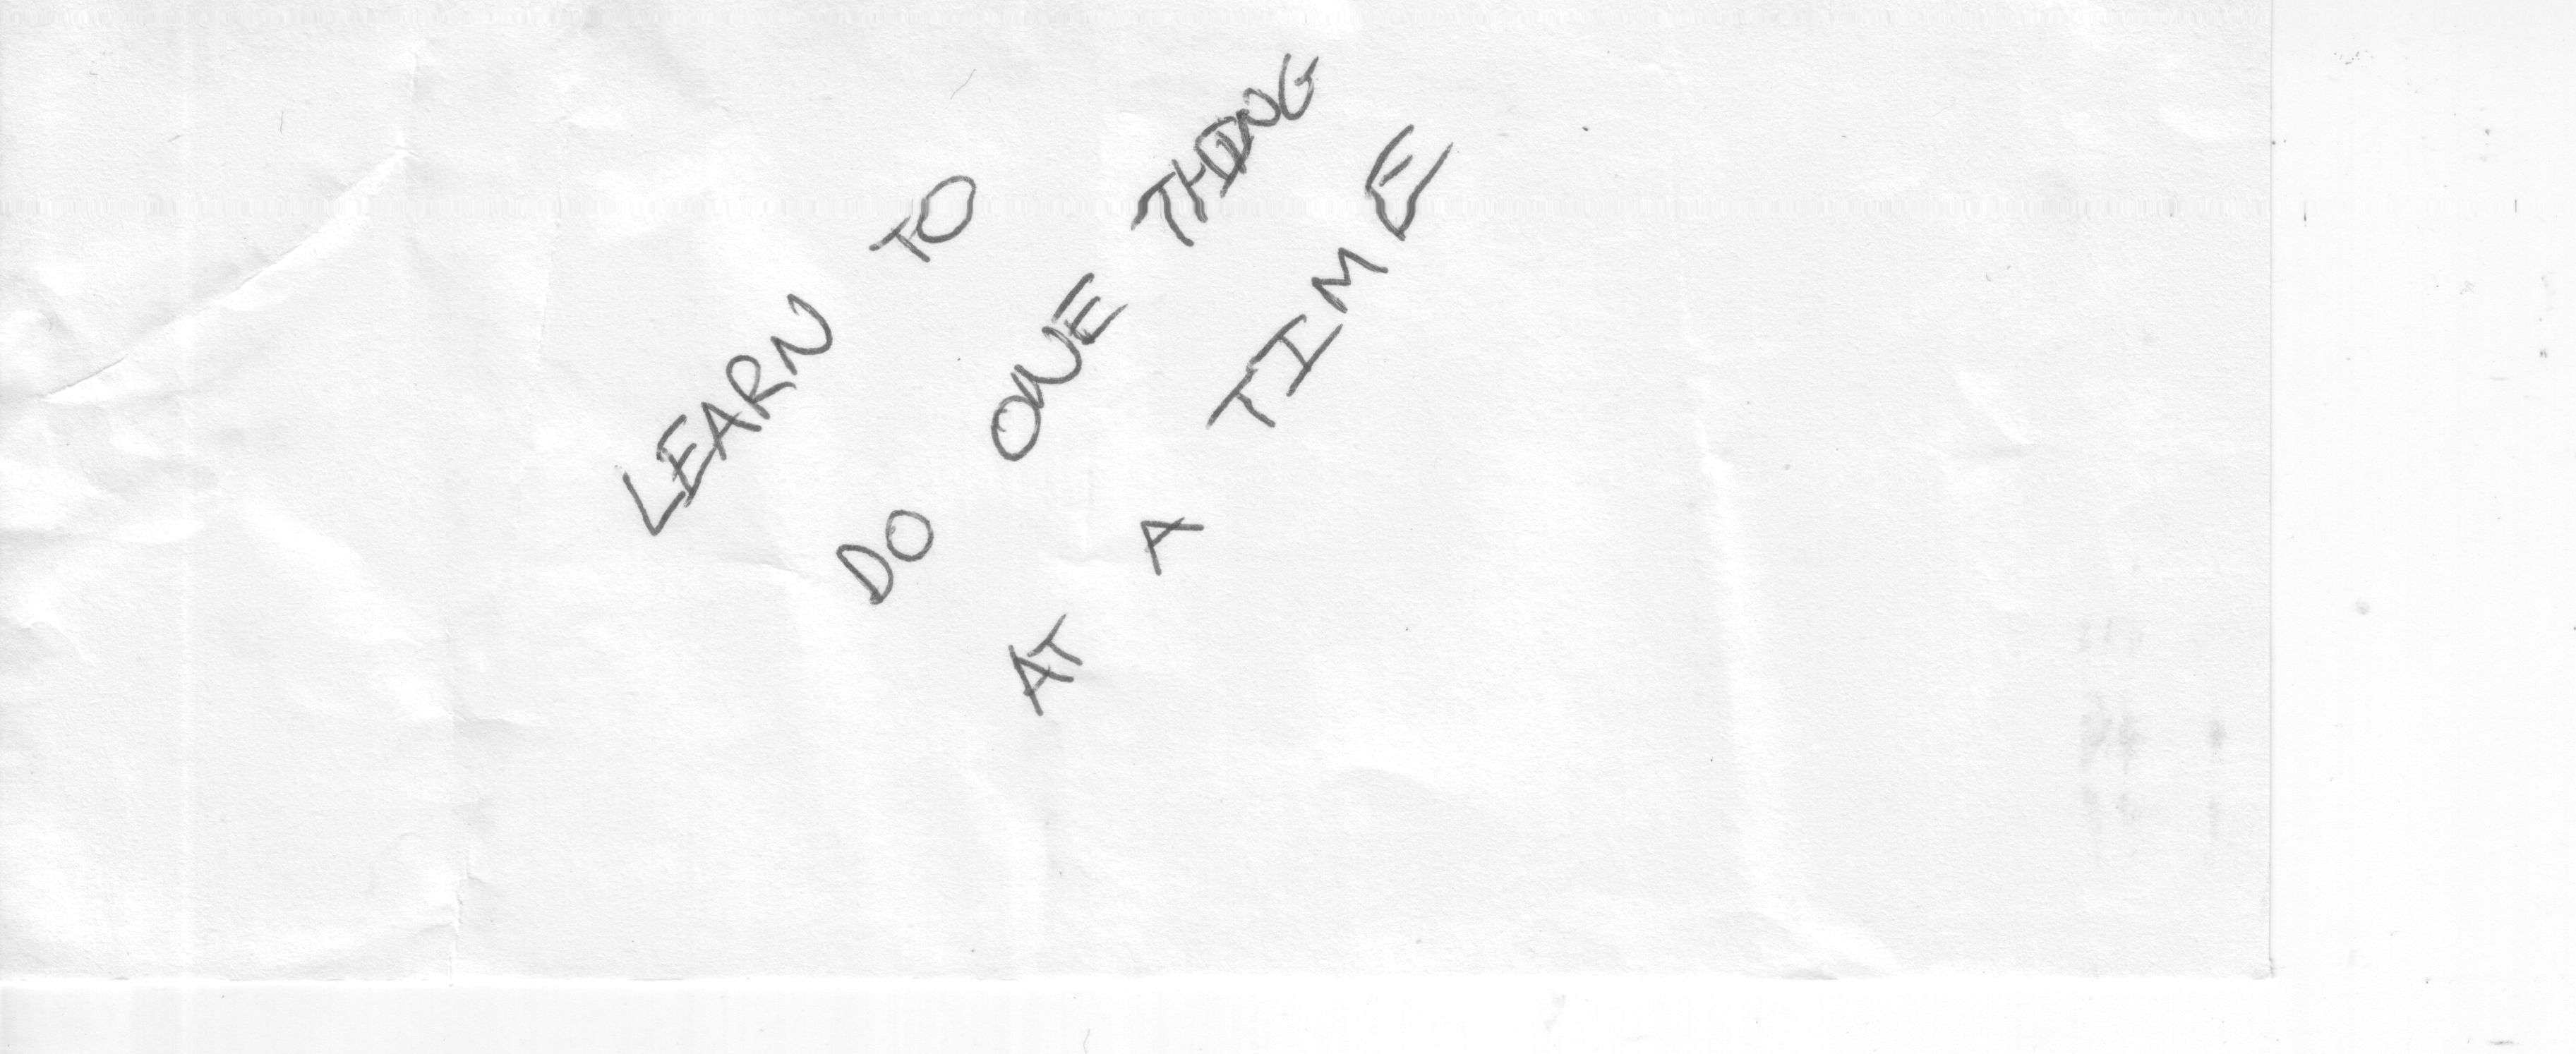 LEARN TO
DO ONE THING
AT A TIME